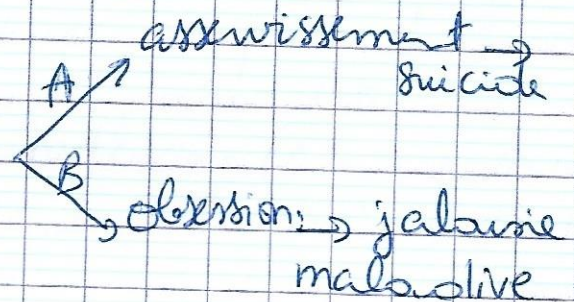 assenvissement →
suicide
A
B
obsession, → jalousie
maladive